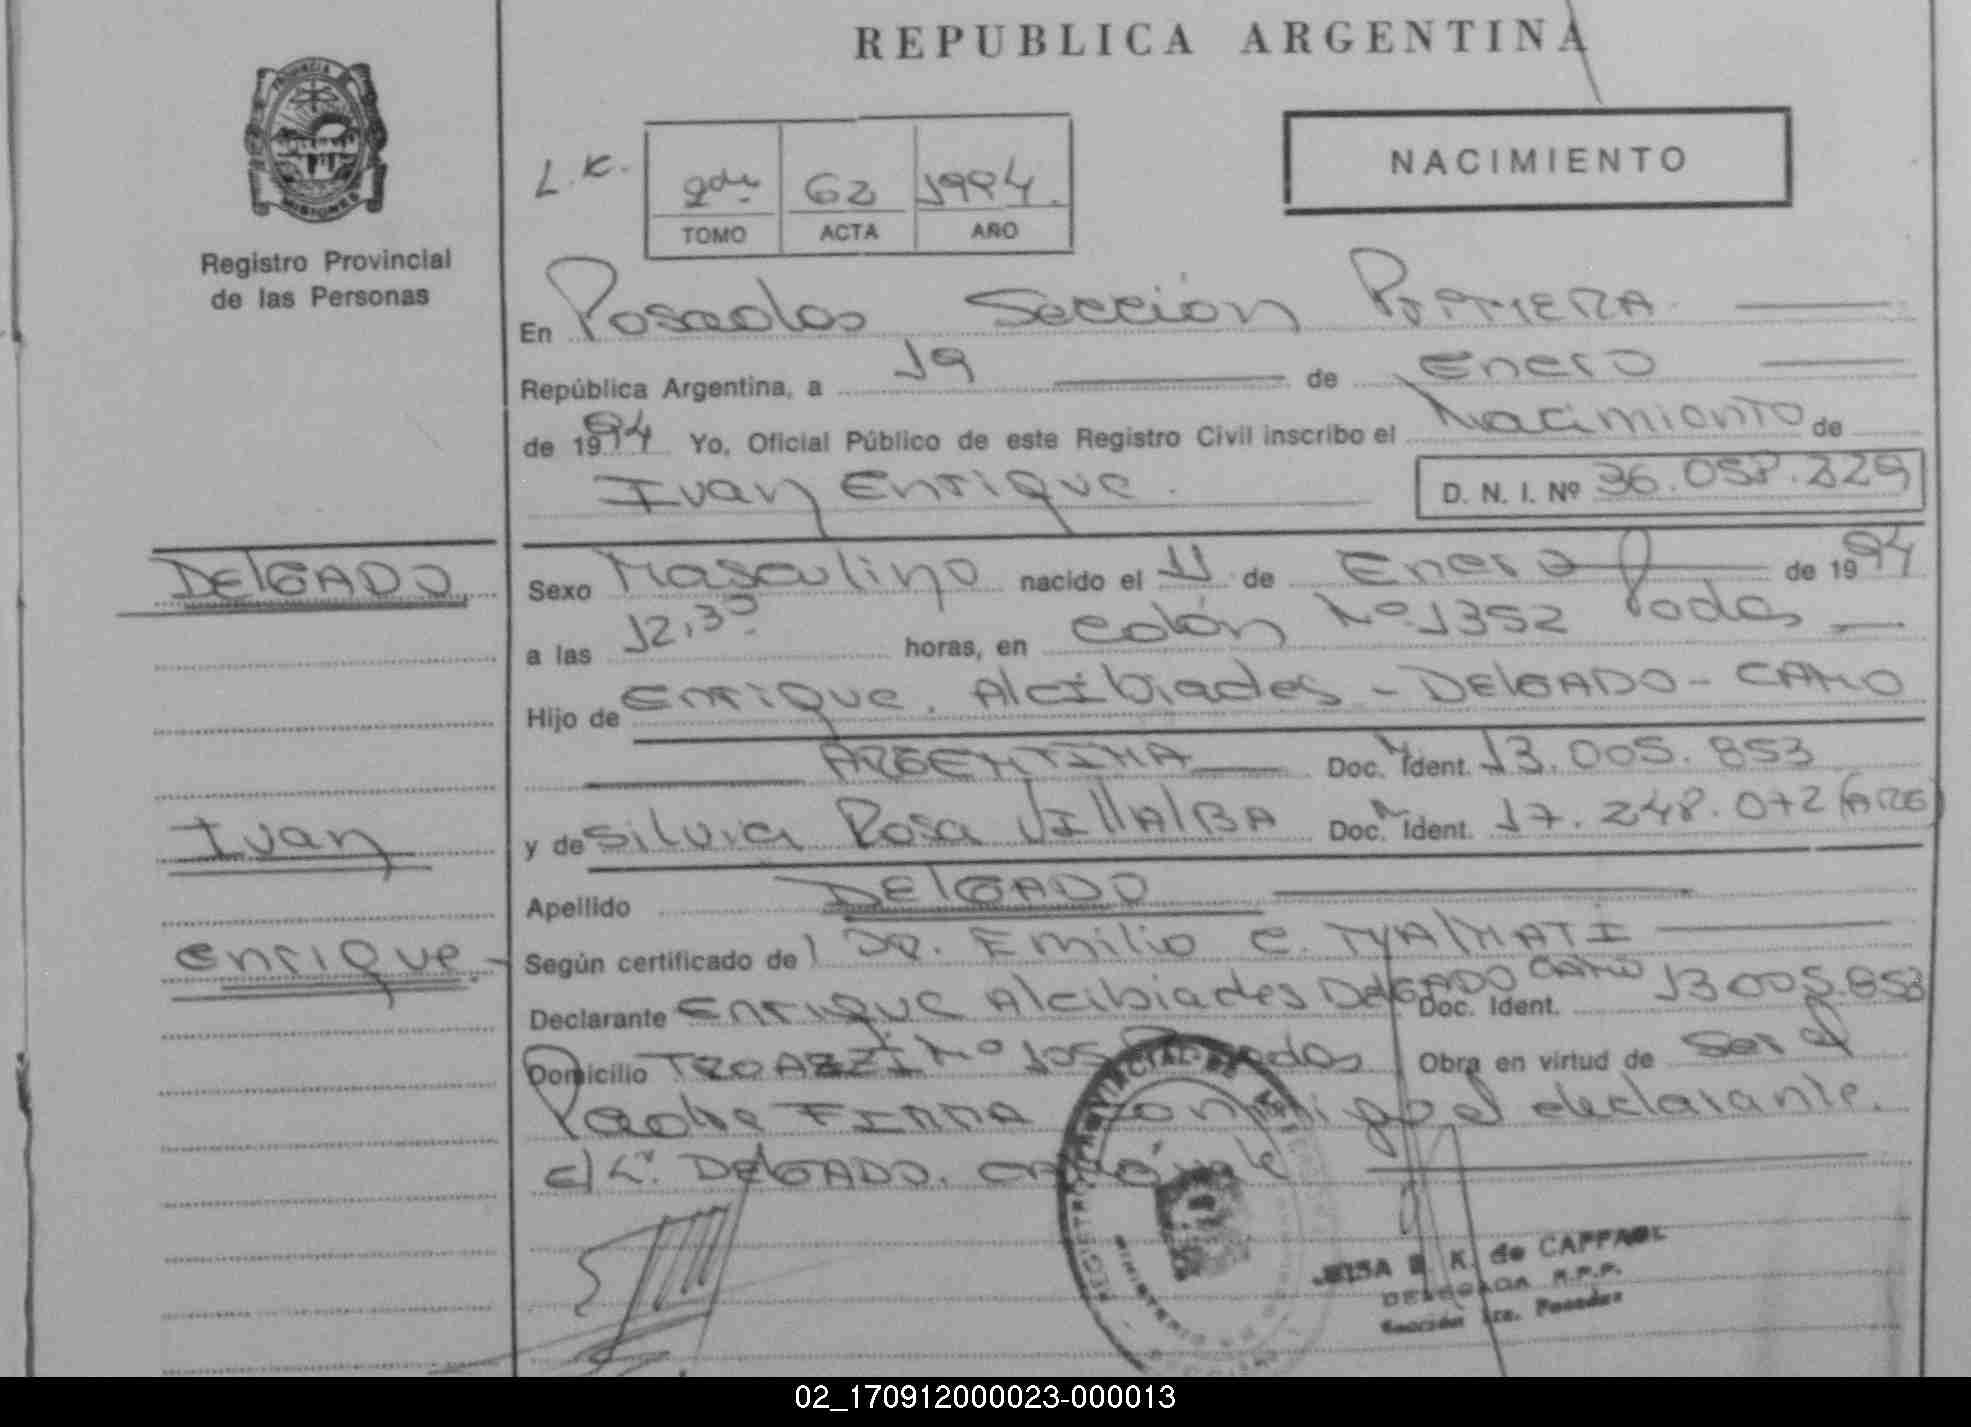 REPUBLICA ARGENTINA
PROVINCIA DE
MISIONES
Registro Provincial
de las Personas
L.K.
2do 62 1994.
TOMO ACTA AÑO
NACIMIENTO
En Posadas Sección PRIMERA
República Argentina, a 19 de Enero
de 1994 Yo, Oficial Público de este Registro Civil inscribo el Nacimiento de
Ivan Enrique. D. N. I. Nº 36.058.229
DElGADO
Sexo Masculino nacido el 11 de Enero de 1994
a las 12,30 horas, en Colón Nº 1352 Podas
Hijo de Enrique Alcibiades - DElGADO - CANO
ARGENTINA Doc. Ident. 13.005.853
Ivan
y de Silvia Rosa VIllAlBA Doc. Ident. 17.248.072 (ARG)
Apellido DElGADO
Enrique.
Según certificado de DR. Emilio C.
Declarante Enrique Alcibiades DElGADO CANO Doc. Ident. 13005.853
Domicilio Nº 105 Posadas Obra en virtud de ser el
Padre FIRMA conmigo el declarante.
c/L: DElGADO. CANO vale
MINISTERIO DE
K. de CAPPAGL
DELEGADA R.P.P.
Sección 1ra. Posadas
02_170912000023-000013